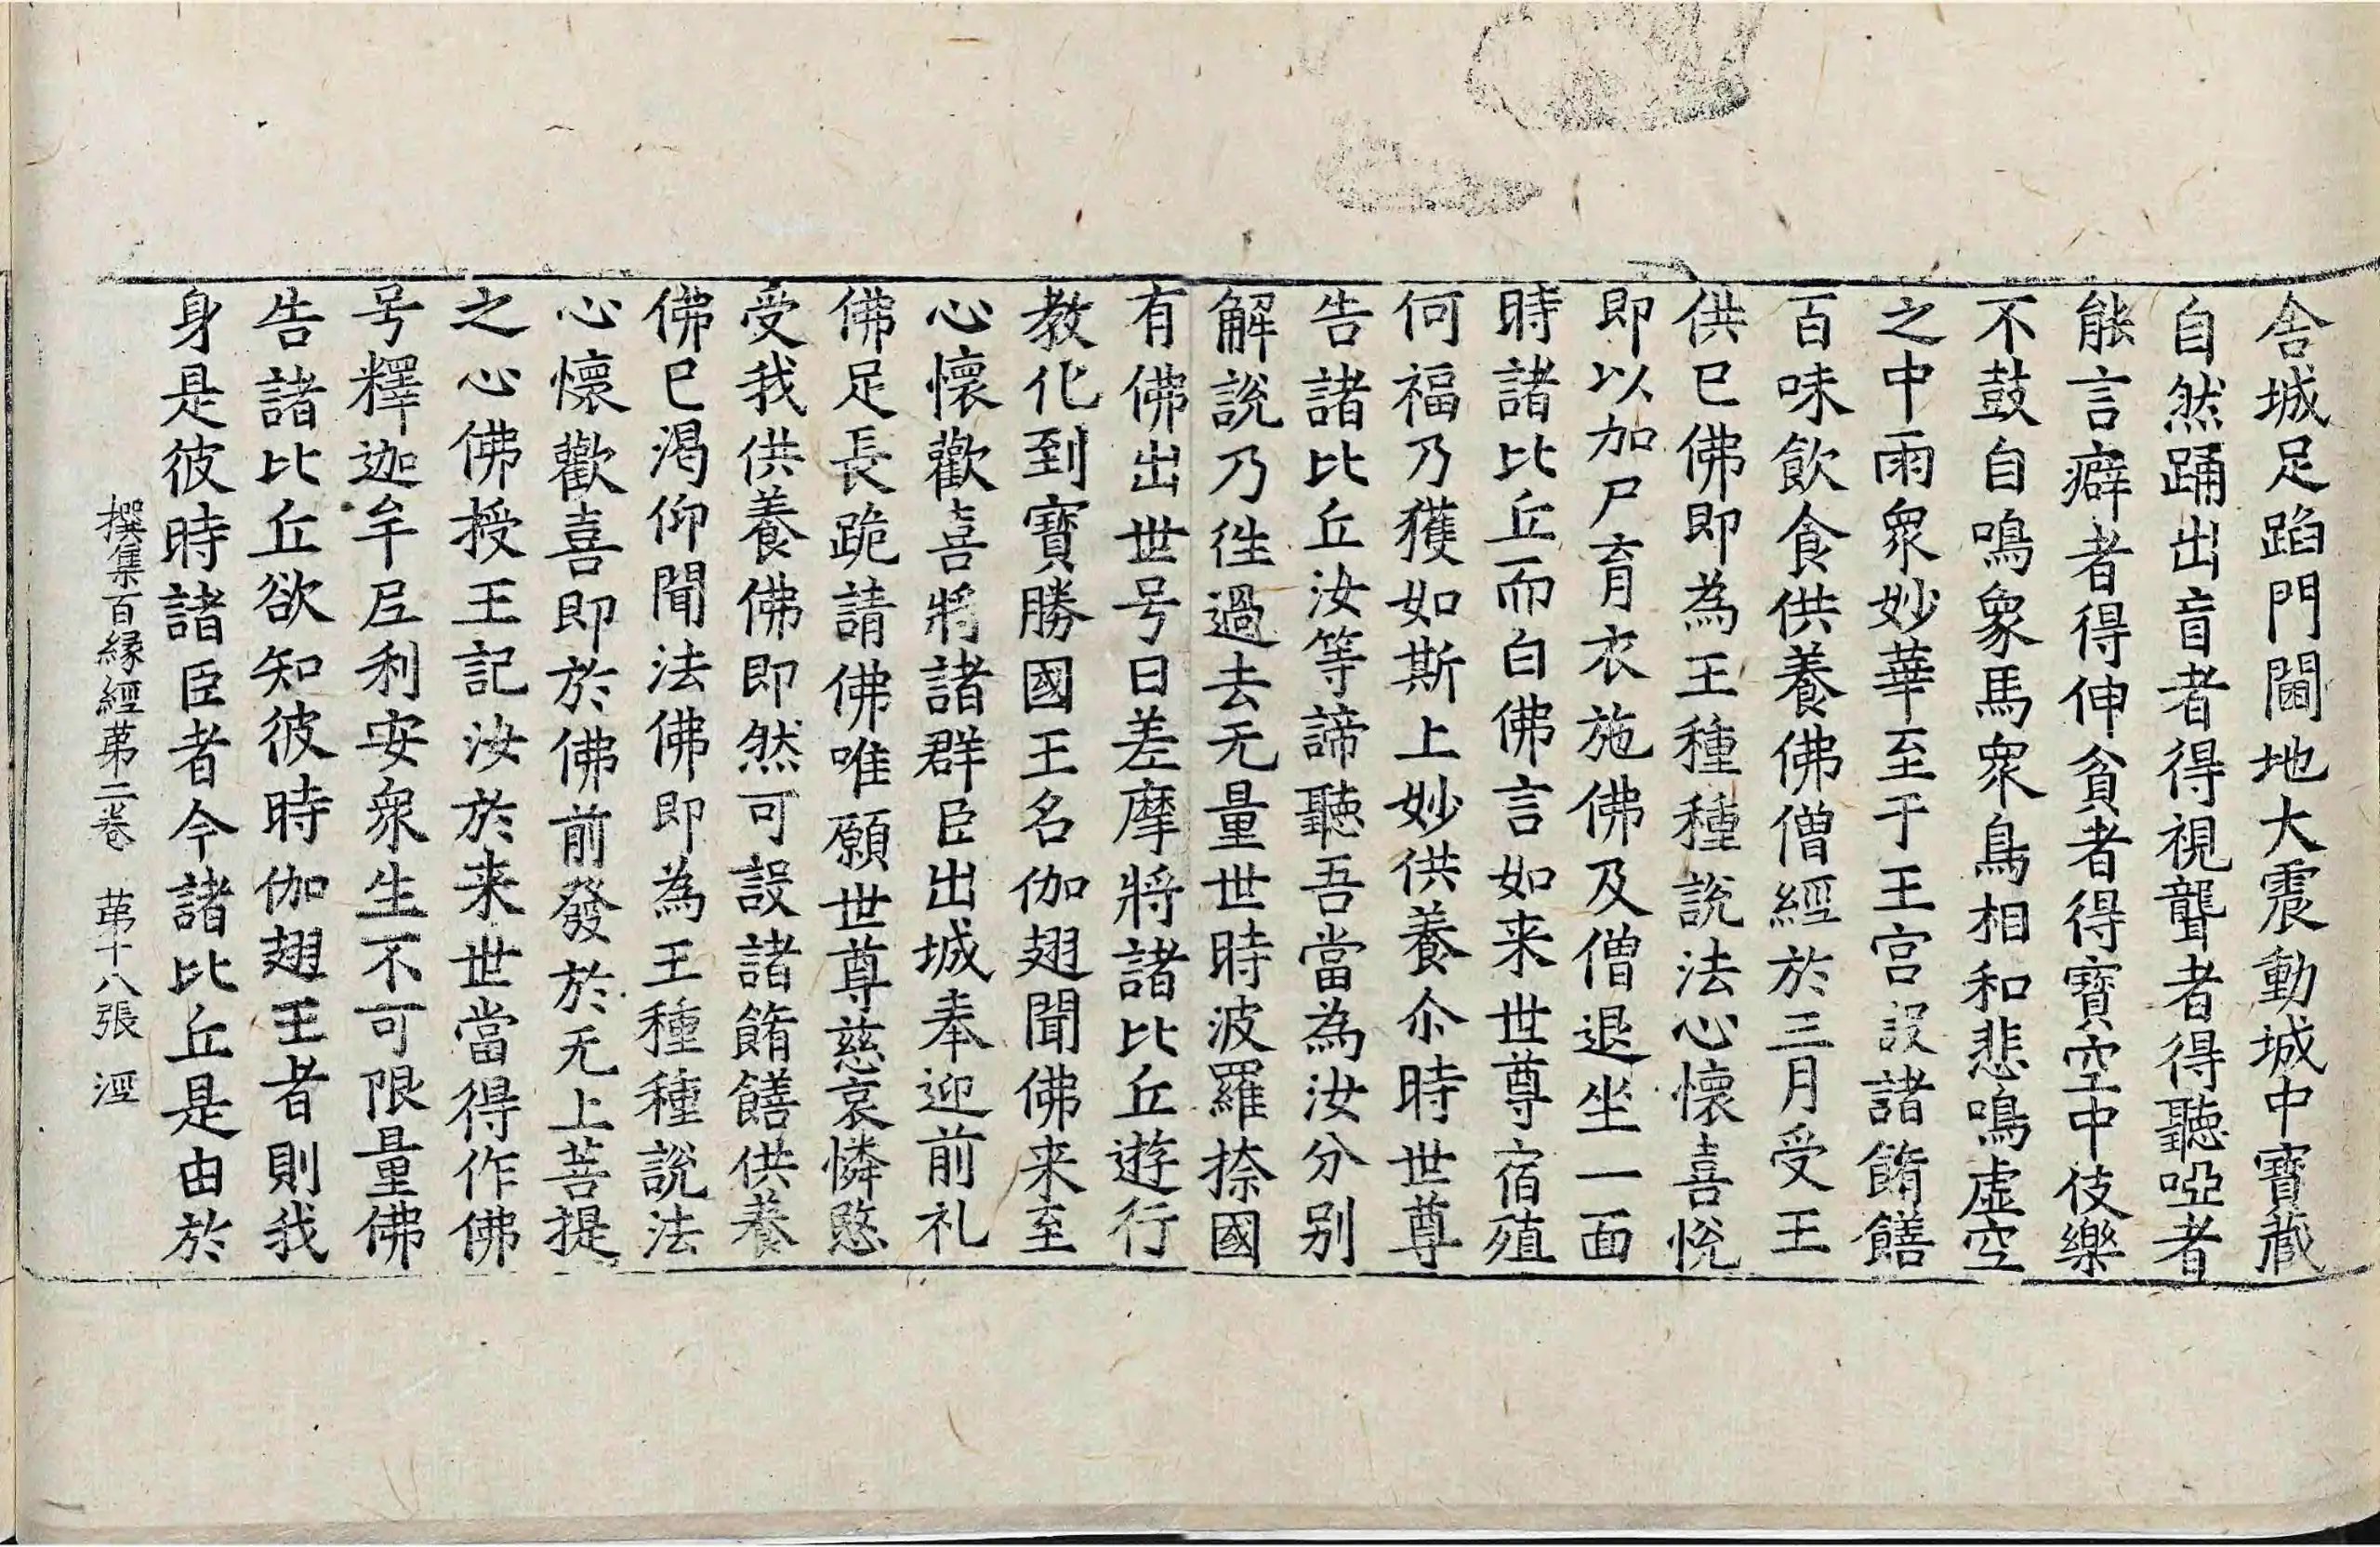 舎城足蹈門閫地大震動城中寶藏
自然踊出盲者得視聾者得聽啞者
能言癖者得伸貧者得寶空中伎樂
不鼓自鳴象馬衆鳥相和悲鳴虛空
之中雨衆妙華至于王宫設諸餚饍
百味飲食供養佛僧經於三月受王
供已佛即為王種種說法心懷喜悅
即以加尸育衣施佛及僧退坐一面
時諸比丘而白佛言如来世尊宿殖
何福乃獲如斯上妙供養尒時世尊
告諸比丘汝等諦聽吾當為汝分别
解說乃徃過去无量世時波羅捺國
有佛出世号曰差摩將諸比丘遊行
教化到寶勝國王名伽翅聞佛来至
心懷歡喜將諸群臣出城奉迎前礼
佛足長跪請佛唯願世尊慈哀憐愍
受我供養佛即然可設諸餚饍供養
佛已渇仰聞法佛即為王種種說法
心懷歡喜即於佛前發於无上菩提
之心佛授王記汝於来世當得作佛
号釋迦牟尼利安衆生不可限量佛
告諸比丘欲知彼時伽翅王者則我
身是彼時諸臣者今諸比丘是由於
撰集百縁經苐二卷 苐十八張 涇